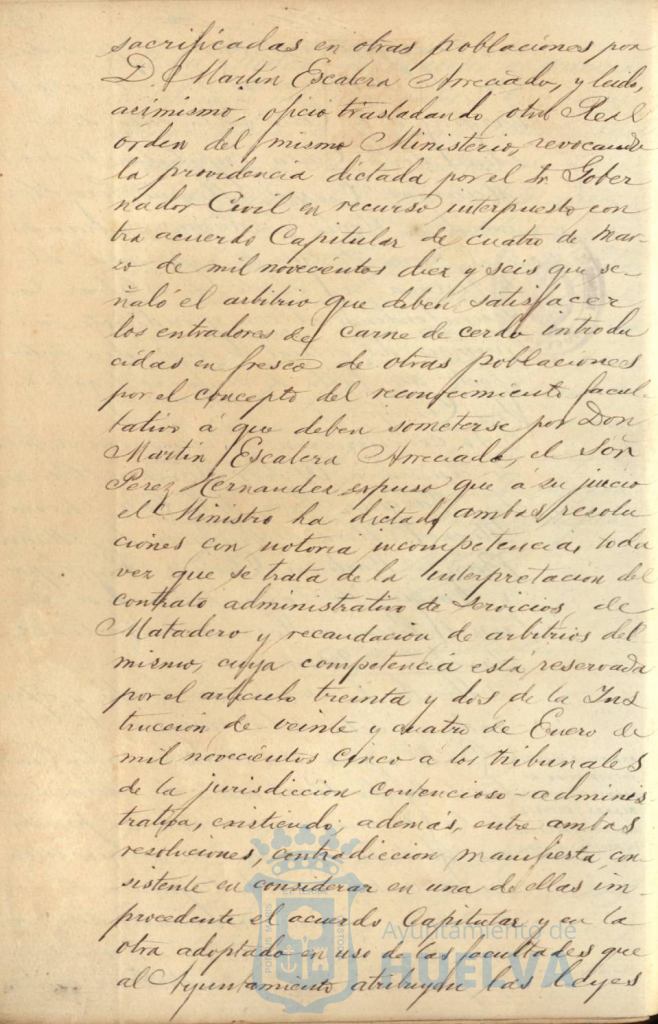 sacrificadas en otras poblaciones por
D. Martín Escalera Arreciado, y leido,
asimismo, oficio trasladando otra Real
órden del mismo Ministerio, revocando
la providencia dictada por el Sr Gober
nador Civil en recurso interpuesto con
tra acuerdo Capitular de cuatro de Mar-
zo de mil novecientos diez y seis que se-
ñaló el arbitrio que deben satisfacer
los entradores de carne de cerdo introdu
cidas en fresco de otras poblaciones
por el concepto del reconocimiento facul-
tativo á que deben someterse por Don
Martin Escalera Arreciado, el Señor
Perez Hernandez expuso que á su juicio
el Ministro ha dictado ambas resolu
ciones con notoria incompetencia, toda
vez que se trata de la interpretacion del
contrato administrativo de servicios de
Matadero y recaudacion de arbitrios del
mismo, cuya competencia está reservada
por el artículo treinta y dos de la Ins
truccion de veinte y cuatro de Enero de
mil novecientos cinco á los tribunales
de la jurisdiccion contencioso-adminis
trativa, existiendo, además, entre ambas
resoluciones, contradiccion manifiesta, con
sistente en considerar en una de ellas im-
procedente el acuerdo Capitular y en la
otra adoptado en uso de las facultades que
al Ayuntamiento atribuyen las leyes
Ayuntamiento de
HUELVA